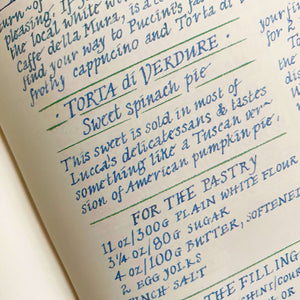 turn-of
pleasing. If
the local white w
Caffè della Mura, is a
find your way to Puccini's fa
frothy cappucino and Torta di
· TORTA di VERDURE ·
Sweet spinach pie
This sweet is sold in most of
Lucca's delicatessans & tastes
something like a Tuscan ver-
sion of American pumpkin pie.
FOR THE PASTRY
11 oz/300g PLAIN WHITE FLOUR
3¼ oz/90g SUGAR
4 oz/100g BUTTER, SOFTENED
2 EGG YOLKS
PINCH SALT
THE FILLING
your fi
for 2